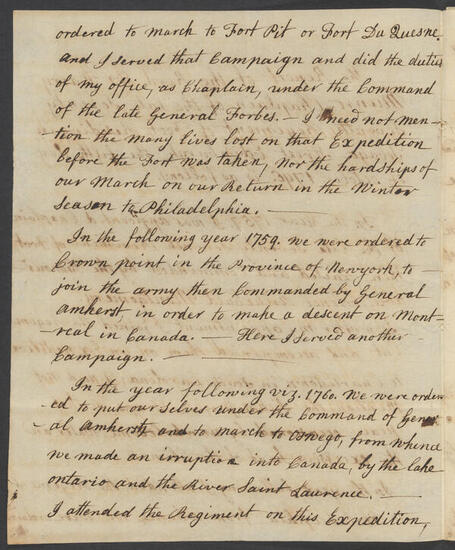 ordered to march to Fort Pit or Fort Du Quesne.
and I served that Campaign and did the duties
of my office, as Chaplain, under the Command
of the late General Forbes. — I need not men-
-tion the many lives lost on that Expedition
before the Fort was taken, nor the hardships of
our March on our Return in the Winter
season to Philadelphia. —
In the following year 1759. we were ordered to
Crown point in the Province of Newyork, to —
join the army then Commanded by General
Amherst in order to make a descent on Mont-
-real in Canada. — Here I served another
Campaign. —
In the year following viz. 1760. We were order-
-ed to put our selves under the Command of Gener-
-al Amherst, and to march to Oswego, from whence
we made an irruption into Canada, by the lake
ontario and the River Saint Laurence. —
I attended the Regiment on this Expedition,